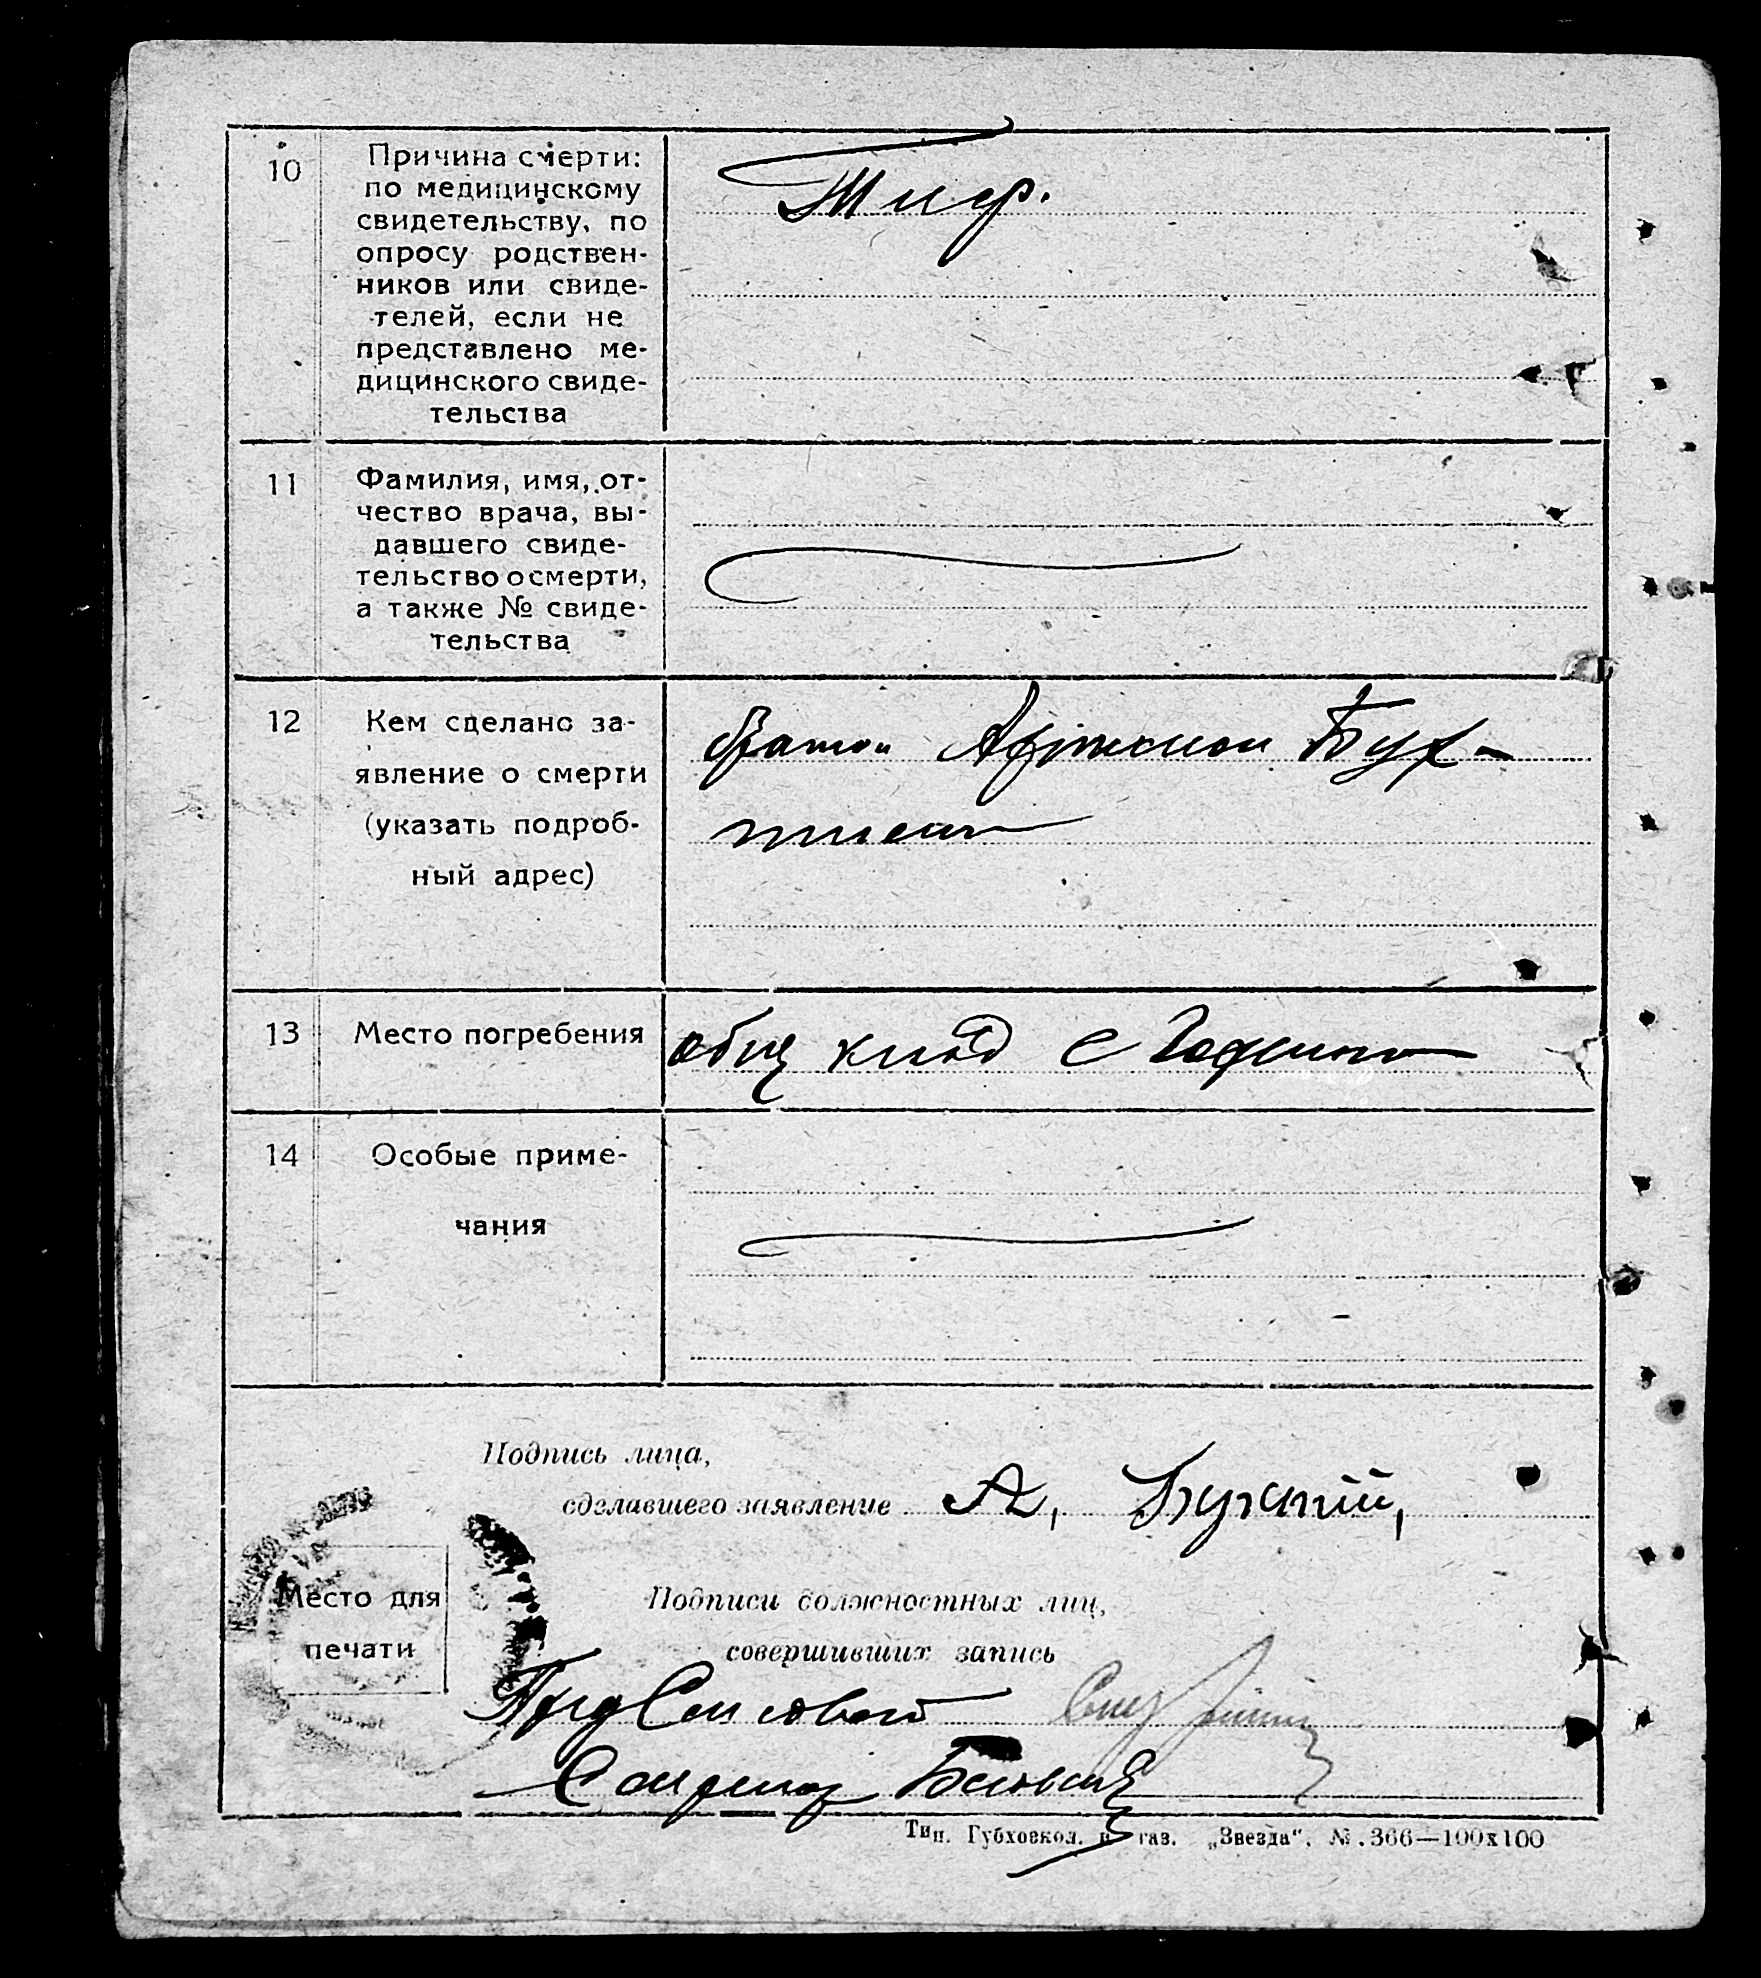 10
Причина смерти:
по медицинскому
свидетельству, по
опросу родствен-
ников или свиде-
телей, если не
представлено ме-
дицинского свиде-
тельства
Тиф.
11
Фамилия, имя, от-
чество врача, вы-
давшего свиде-
тельство о смерти,
а также № свиде-
тельства
12
Кем сделано за-
явление о смерти
(указать подроб-
ный адрес)
13
Место погребения
общ клад с
14
Особые приме-
чания
Подпись лица,
сделавшего заявление А,
Место для
печати
Подписи должностных лиц,
совершивших запись
Пред
Тип. Губховкол. и газ. „Звезда“. №. 366—100х100